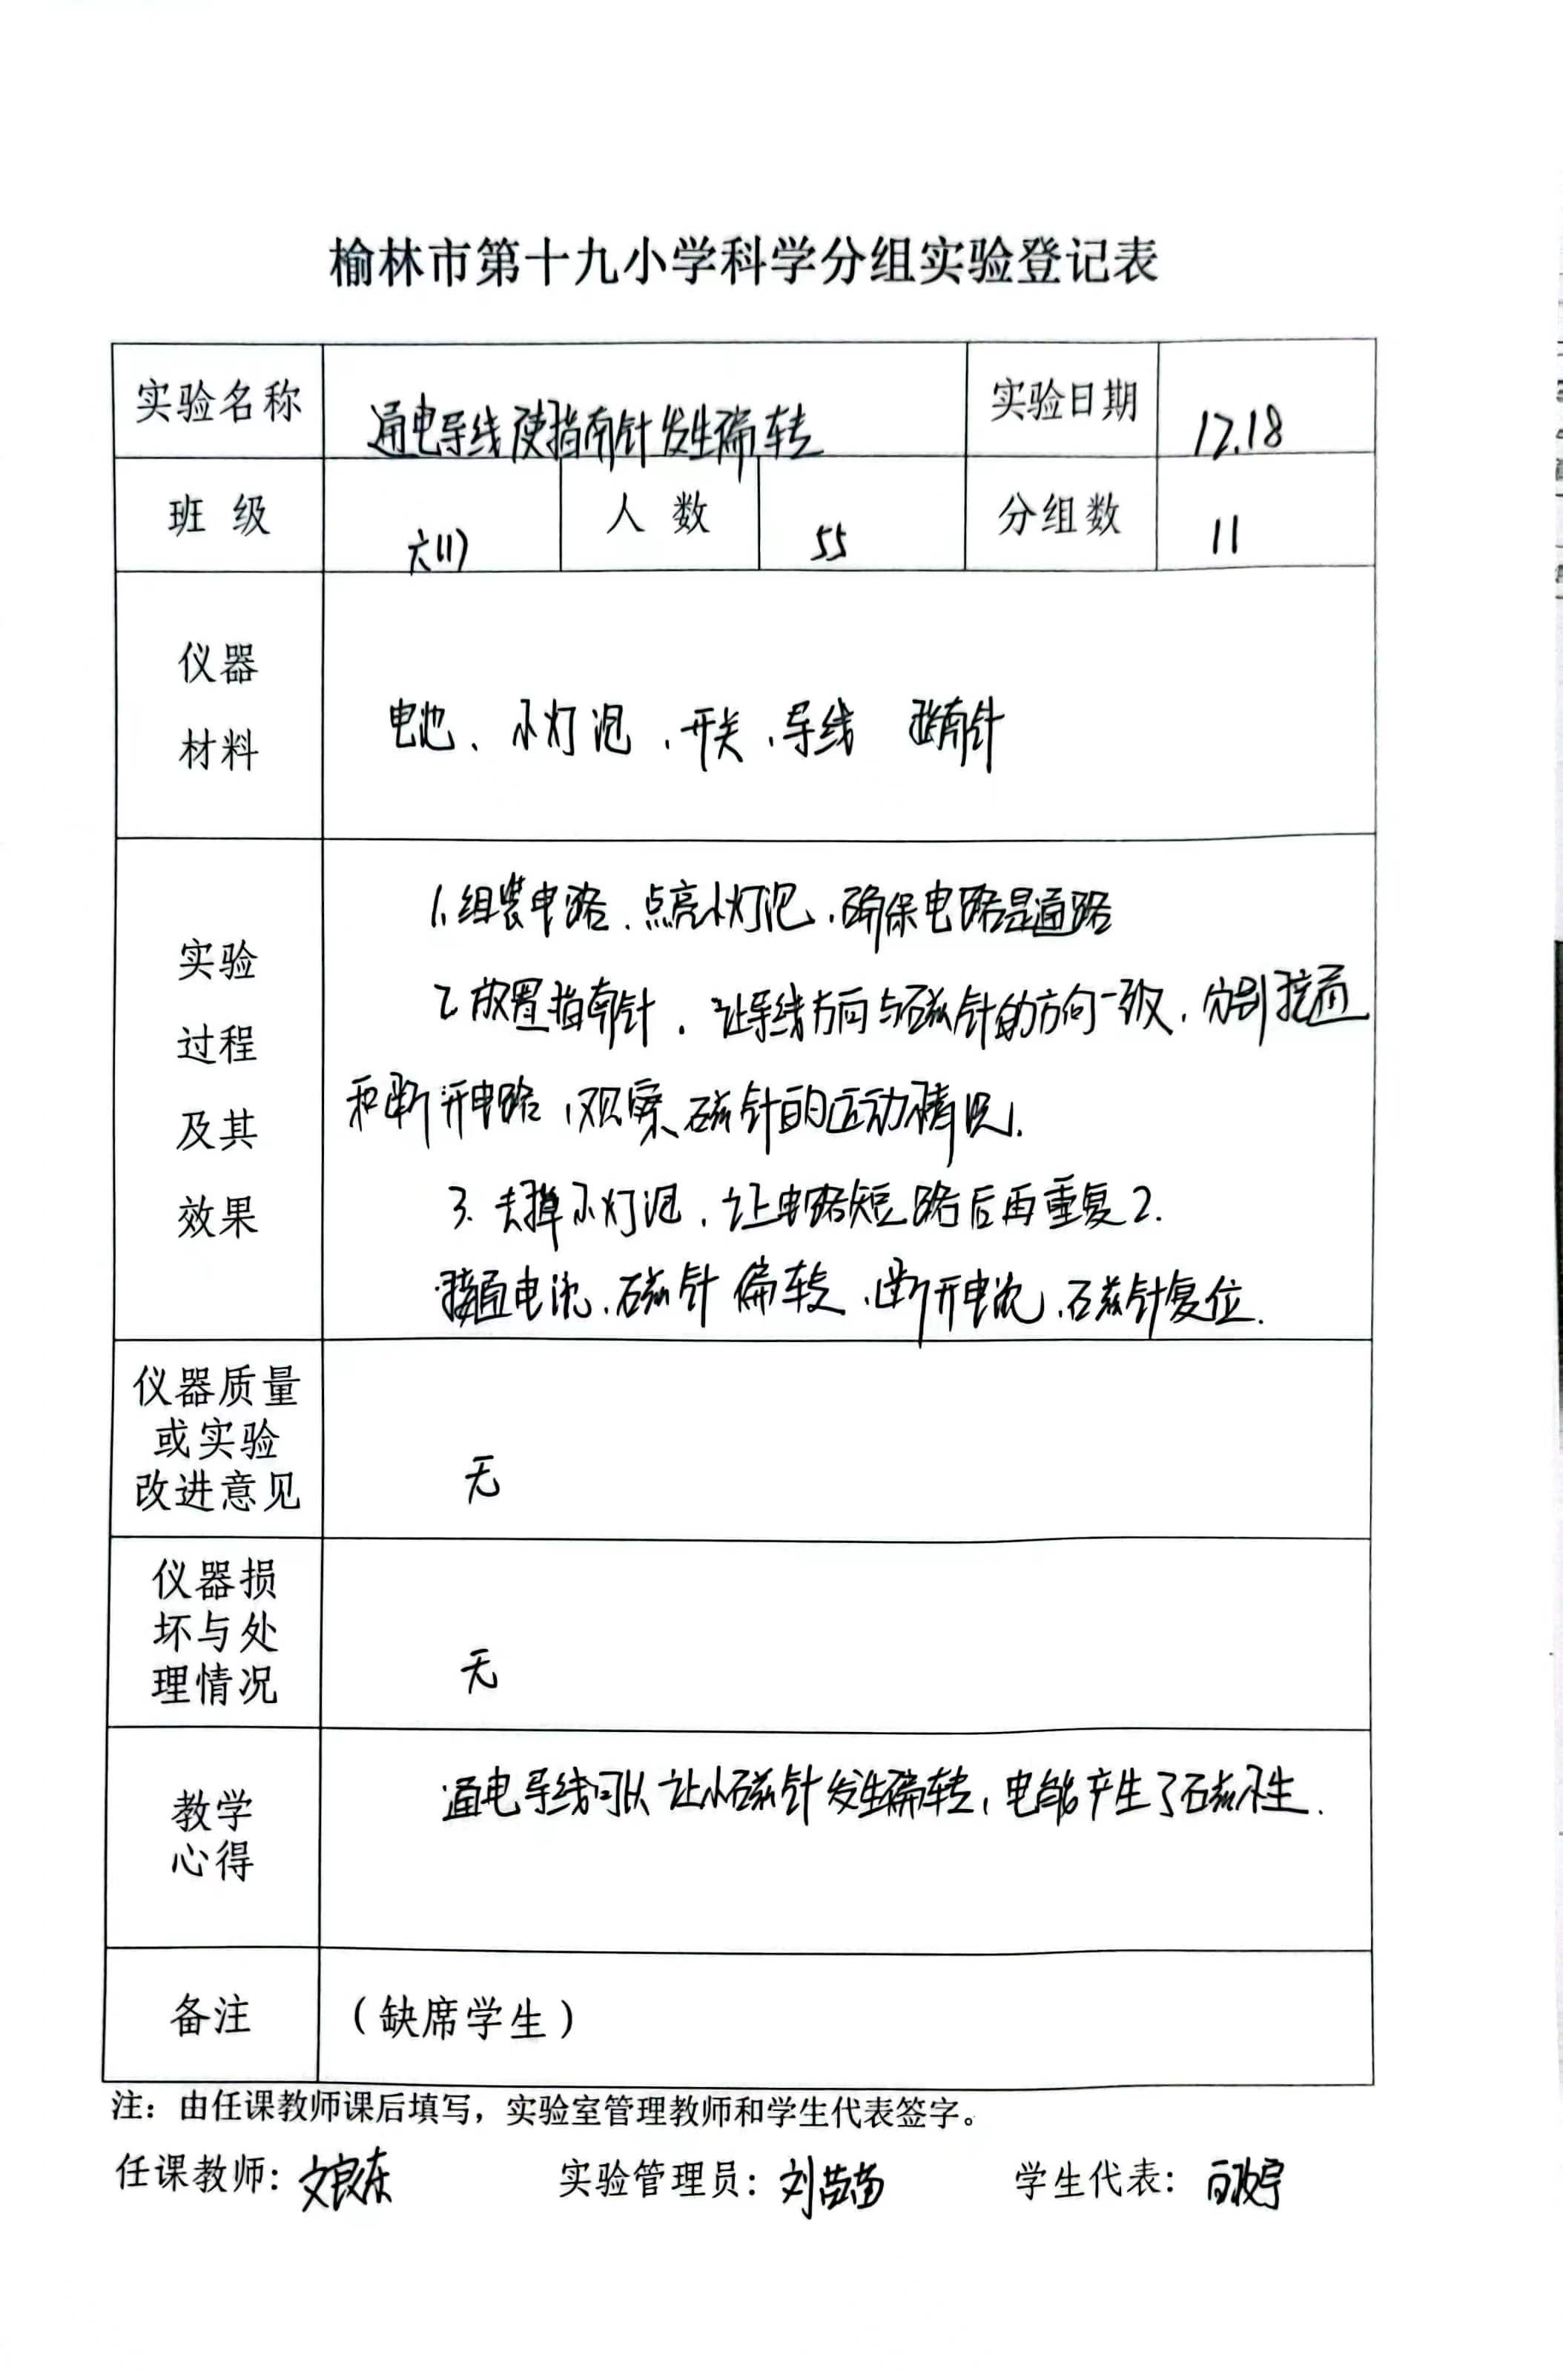 榆林市第十九小学科学分组实验登记表
实验名称 通电导线使指南针发生偏转 实验日期 12.18
班 级 六(1) 人 数 55 分组数 11
仪器
材料
电池、小灯泡、开关、导线 指南针
实验
过程
及其
效果
1.组装电路、点亮小灯泡,确保电路是通路
2 放置指南针,让导线方向与磁针的方向一致,分别接通
和断开电路,观察磁针的运动情况.
3.去掉小灯泡,让电路短路后再重复2.
接通电流,磁针偏转,断开电流,磁针复位.
仪器质量
或实验
改进意见
无
仪器损
坏与处
理情况
无
教学
心得
通电导线可以让小磁针发生偏转,电能产生了磁性.
备注 (缺席学生)
注:由任课教师课后填写,实验室管理教师和学生代表签字。
任课教师: 实验管理员:刘苗苗 学生代表: